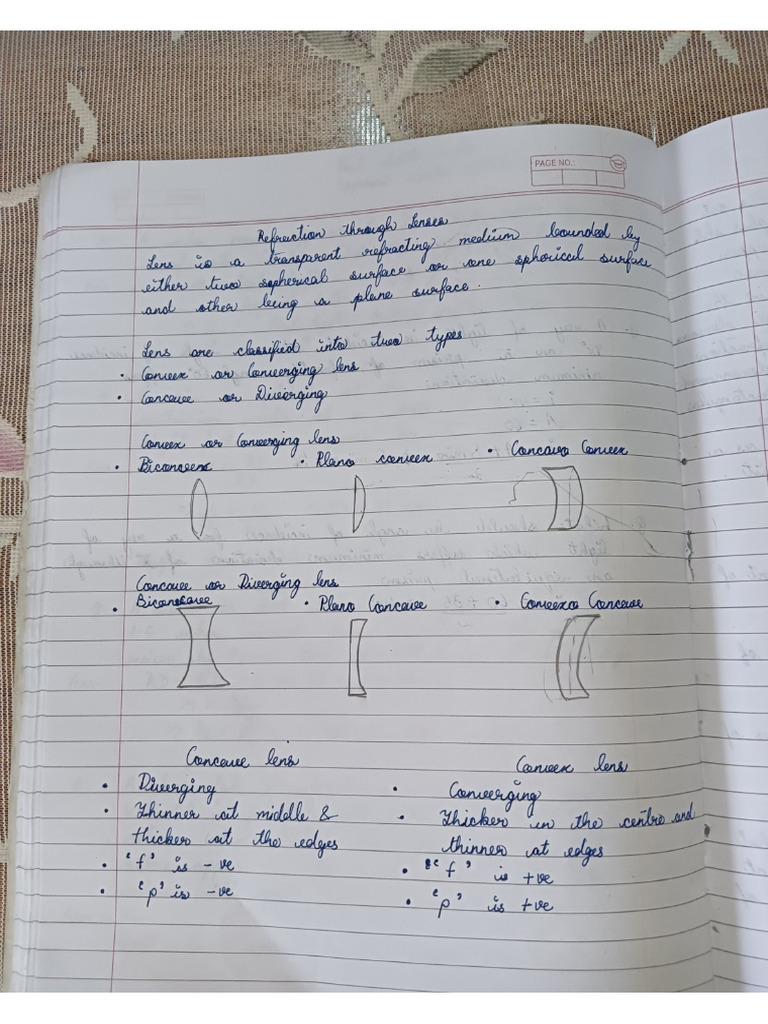 PAGE NO.:
Refraction through Lenses
Lens is a transparent refracting medium bounded by
either two sopherical surface or one spherical surface
and other being a plane surface.
Lens are classified into two types
• Convex or Converging lens
• Concave or Diverging
Convex or Converging lens
• Biconvex • Plano convex • Concavo Convex
Concave or Diverging lens
• Biconcave • Plano Concave • Convexo Concave
Concave lens Convex lens
• Diverging • Converging
• Thinner at middle & • Thicker in the centre and
thicker at the edges thinner at edges
• 'f' is -ve • "f' is +ve
• 'p' is -ve • 'p' is +ve